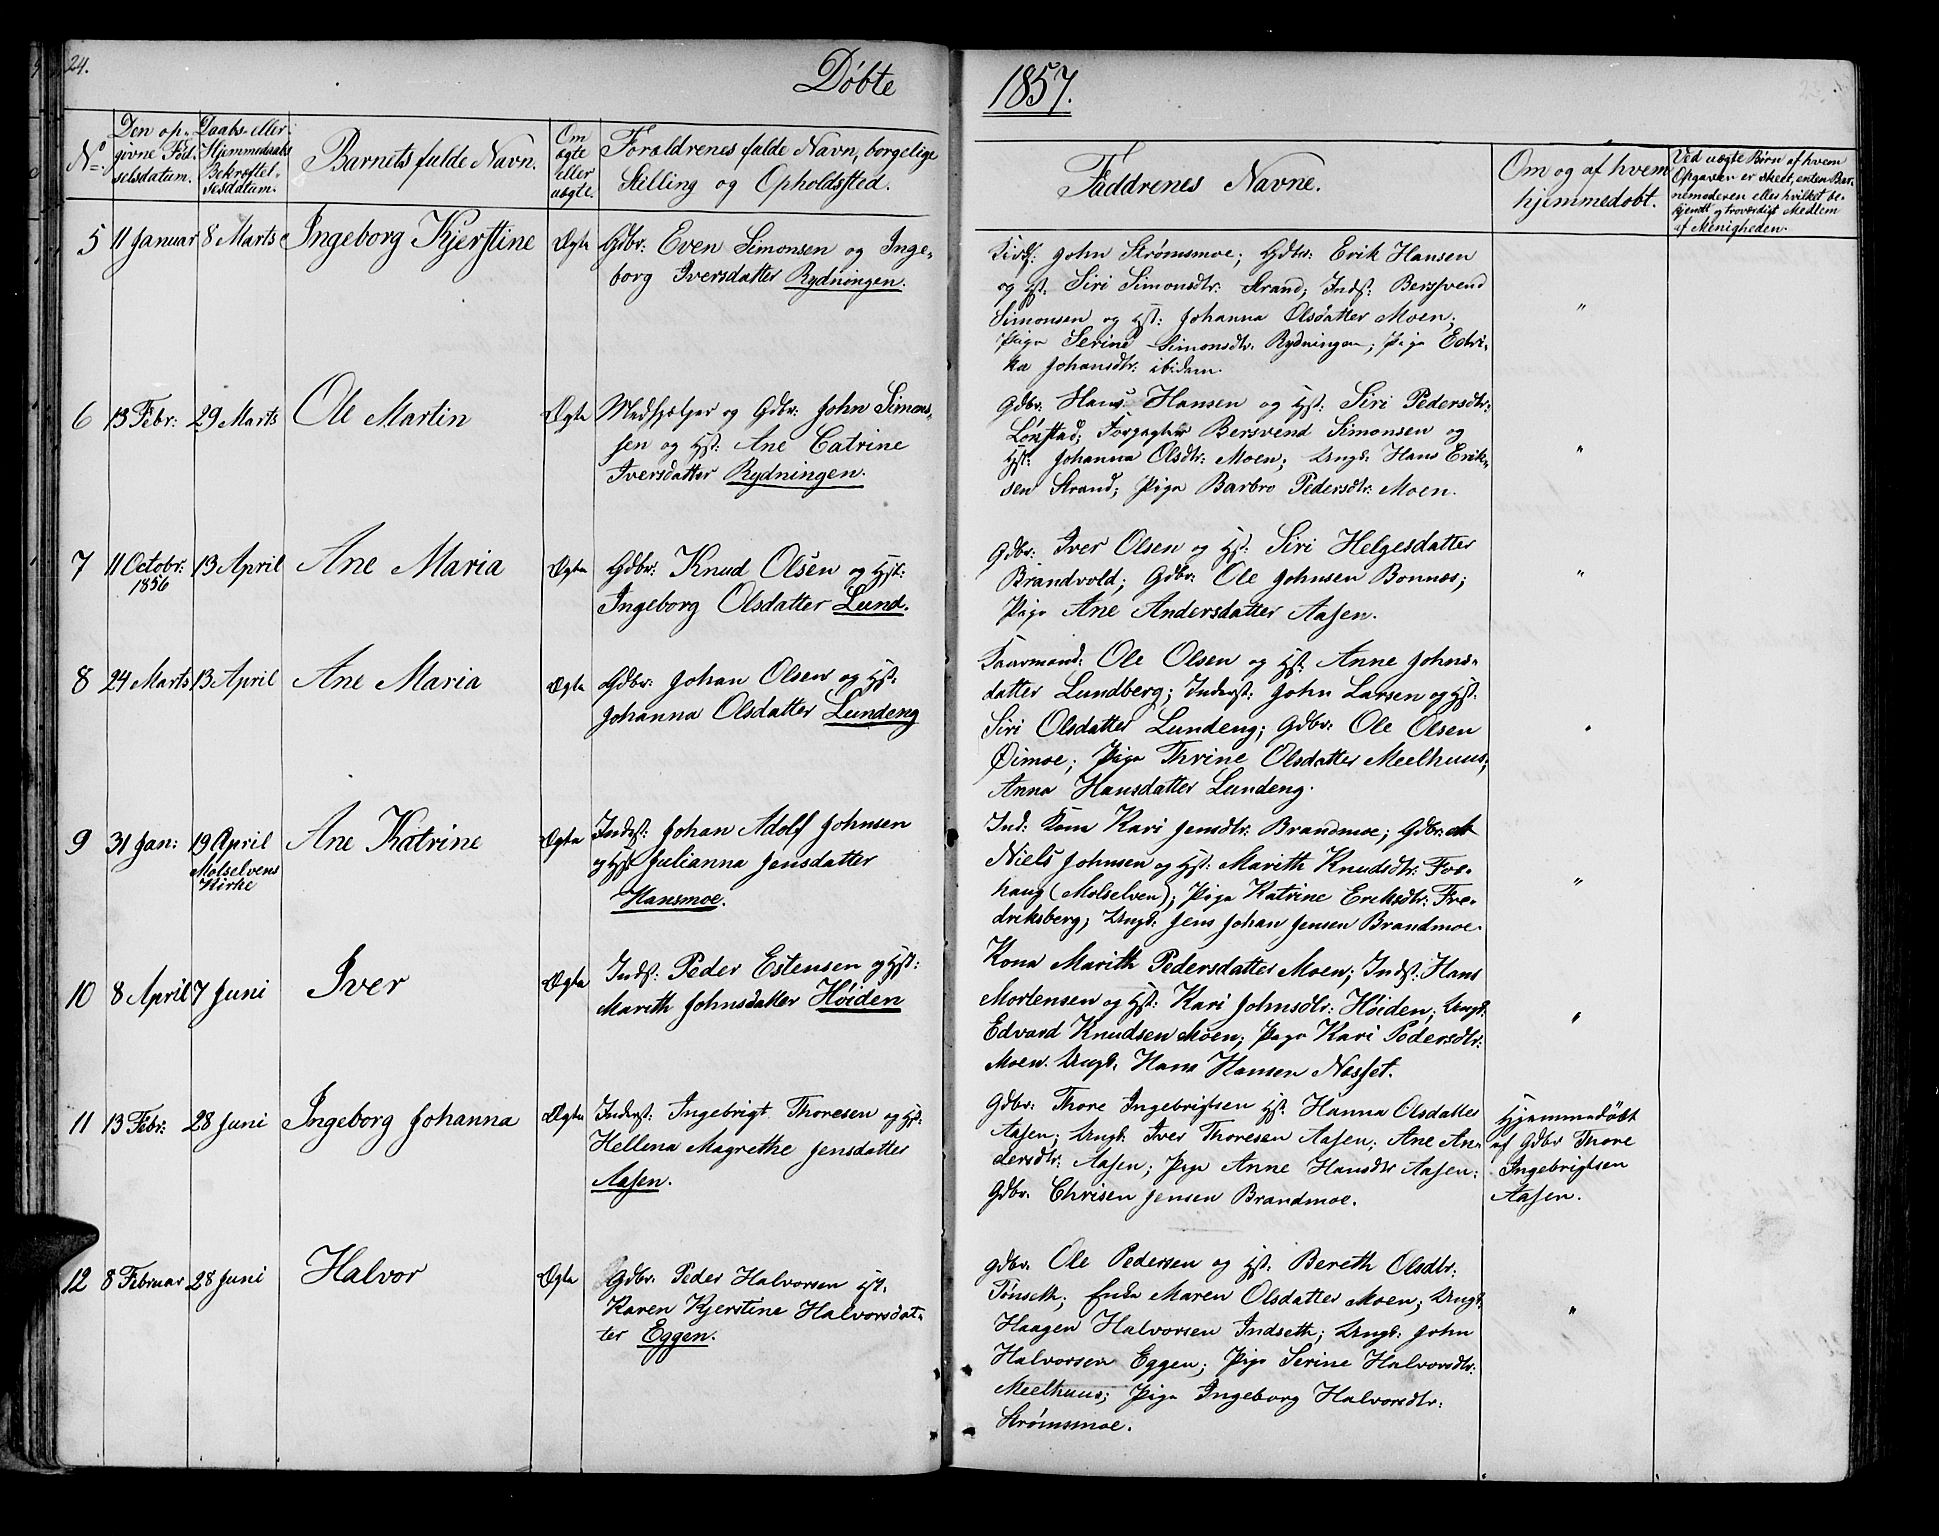 24.
Døbte
1857.
No
Den op-
givne Fød-
selsdatum.
Daabs- eller
Hjemmedaabs
Bekræftel-
sesdatum.
Barnets fulde Navn.
Om
ægte
eller
uægte.
Forældrenes fulde Navn, borgelige
Stilling og Opholdsted.
Faddrenes Navne.
Om og af hvem
hjemmedøbt.
Ved uægte Børn af hvem
Opgaven er skeet, enten Bar-
nemoderen eller hvilket be-
kjendt og troværdigt Medlem
af Menigheden.
5 11 Januar 8 Marts Ingeborg Kjerstine Ægte Gdbr: Even Simonsen og Inge-
borg Iversdatter Rydningen.
John Strømsmoe; Gdbr: Erik Hansen
og Hst: Siri Simonsdtr: Strand; Indst: Bersvend
Simonsen og Hst: Johanna Olsdatter Moen;
Pige Serine Simonsdtr: Rydningen; Pige Edvi-
ka Johansdtr: ibidem.
"
6 13 Febr: 29 Marts Ole Martin Ægte Medhjelper og Gdbr: John Simon-
sen og Hst: Ane Catrine
Iversdatter Rydningen.
Gdbr: Hans Hansen og Hst: Siri Pedersdtr:
Lønstad; Forpagter Bersvend Simonsen og
Hst: Johanna Olsdtr: Moen; Ungk: Hans Erik-
sen Strand; Pige Barbro Pedersdtr: Moen.
"
7 11 Octobr: 13 April Ane Maria Ægte Gdbr: Knud Olsen og Hst:
1856
Ingeborg Olsdatter Lund.
Gdbr: Iver Olsen og Hst: Siri Helgesdatter
Brandvold; Gdbr: Ole Johnsen Bonnes;
Pige Ane Andersdatter Aasen.
"
8 24 Marts 13 April Ane Maria Ægte Gdbr: Johan Olsen og Hst:
Johanna Olsdatter Lundeng
Kaarmand: Ole Olsen og Hst: Anne Johns-
datter Lundberg; Inderst: John Larsen og Hst:
Siri Olsdatter Lundeng; Gdbr: Ole Olsen
Øimoe; Pige Thrine Olsdatter Meelhuus;
Anna Hansdatter Lundeng.
"
9 31 Jan: 19 April Ane Katrine Ægte Indst: Johan Adolf Johnsen
Molselvens
Kirke
og Hst: Julianna Jensdatter
Hansmoe.
Ind: Kone Kari Jensdtr: Brandmoe; Gdbr:
Niels Johnsen og Hst: Marith Knudsdtr: Fos-
haug (Molselven); Pige Katrine Eriksdtr: Fre-
driksberg; Ungk: Jens Johan Jensen Brandmoe.
"
10 8 April 7 Juni Iver Ægte Indst: Peder Estensen og Hst:
Marith Johnsdatter Høiden
Kona Marith Pedersdatter Moen; Indst: Hans
Mortensen og Hst: Kari Johnsdtr: Høiden; Ungk:
Edvard Knudsen Moen; Pige Kari Pedersdtr:
Moen. Ungk: Hans Hansen Nesset.
"
11 13 Febr: 28 Juni Ingeborg Johanna Ægte Inderst: Ingebrigt Thoresen og Hst:
Hellena Magrethe Jensdatter
Aasen.
Gdbr: Thore Ingebrigtsen Hst: Hanna Olsdatter
Aasen; Ungk: Iver Thoresen Aasen; Ane An-
dersdtr: Aasen; Pige Anne Hansdtr Aasen;
Gdbr. Chrisen Jensen Brandmoe.
Hjemmedøbt
af Gdbr Thore
Ingebrigtsen
Aasen.
12 8 Februar 28 Juni Halvor Ægte Gdbr: Peder Halvorsen Hst.
Karen Kjerstine Halvorsdat-
ter Eggen.
Gdbr: Ole Pedersen og Hst: Bereth Olsdtr:
Tønseth; Enke Maren Olsdatter Moen; Ungk:
Haagen Halvorsen Indseth; Ungk: John
Halvorsen Eggen; Pige Serine Halvorsdtr:
Meelhuus; Pige Ingeborg Halvorsdtr:
Strømsmoe.
"